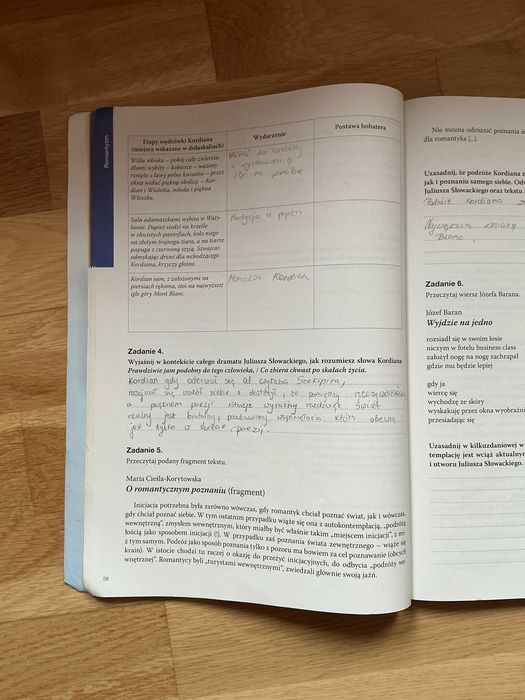 Romantyzm
Etapy wędrówki Kordiana
(miejsca wskazane w didaskaliach)
Wydarzenie
Postawa bohatera
Willa włoska – pokój cały zwiercia-
dłami wybity – kobierce – wazony
rznięte z lawy pełne kwiatów – przez
okna widać piękną okolicę. – Kor-
dian i Wioletta, młoda i piękna
Włoszka.
Miłość do
i wystawienie
jej na próbę
Sala adamaszkami wybita w Waty-
kanie. Papież siedzi na krześle
w złocistych pantoflach, koło niego
na złotym trójnogu tiara, a na tiarze
papuga z czerwoną szyją. Szwajcar,
odmykając drzwi dla wchodzącego
Kordiana, krzyczy głośno.
Audycja u papieża
Kordian sam, z założonymi na
piersiach rękoma, stoi na najwyższej
igle góry Mont Blanc.
Monolog Kordiana
Zadanie 4.
Wyjaśnij w kontekście całego dramatu Juliusza Słowackiego, jak rozumiesz słowa Kordiana:
Prawdziwie jam podobny do tego człowieka, / Co zbiera chwast po skałach życia.
Kordian gdy oderwał się od czytania Szekspira,
rozejrzał się wokół siebie i dostrzegł, że pomiędzy rzeczywistością
a pięknem poezji istnieje wyraźny rozdźwięk. Świat
realny jest brutalny, pozbawiony wspaniałości która obecna
jest tylko w świecie poezji.
Zadanie 5.
Przeczytaj podany fragment tekstu.
Maria Cieśla-Korytowska
O romantycznym poznaniu (fragment)
Inicjacja potrzebna była zarówno wówczas, gdy romantyk chciał poznać świat, jak i wówczas,
gdy chciał poznać siebie. W tym ostatnim przypadku wiąże się ona z autokontemplacją, „podróżą
wewnętrzną”, zmysłem wewnętrznym, który miałby być właśnie takim „miejscem inicjacji”, z mi-
łością jako sposobem inicjacji (!). W przypadku zaś poznania świata zewnętrznego – wiąże się
z tym samym. Podróż jako sposób poznania tylko z pozoru ma bowiem za cel poznawanie (obcych
krain). W istocie chodzi tu raczej o okazję do przeżyć inicjacyjnych, do odbycia „podróży we-
wnętrznej”. Romantycy byli „turystami wewnętrznymi”, zwiedzali głównie swoją jaźń.
58
Nie można odróżnić poznania s
dla romantyka [...].
Uzasadnij, że podróże Kordiana
jak i poznaniu samego siebie. Od
Juliusza Słowackiego oraz tekstu
Podróże Kordiana
Blanc.
Zadanie 6.
Przeczytaj wiersz Józefa Barana.
Józef Baran
Wyjdzie na jedno
rozsiadł się w swoim losie
niczym w fotelu business class
założył nogę na nogę zachrapał
gdzie mu będzie lepiej
gdy ja
wiercę się
wychodzę ze skóry
wyskakuję przez okna wyobraźni
przesiadając się
Uzasadnij w kilkuzdaniowej w
templację jest wciąż aktualnym
i utworu Juliusza Słowackiego.